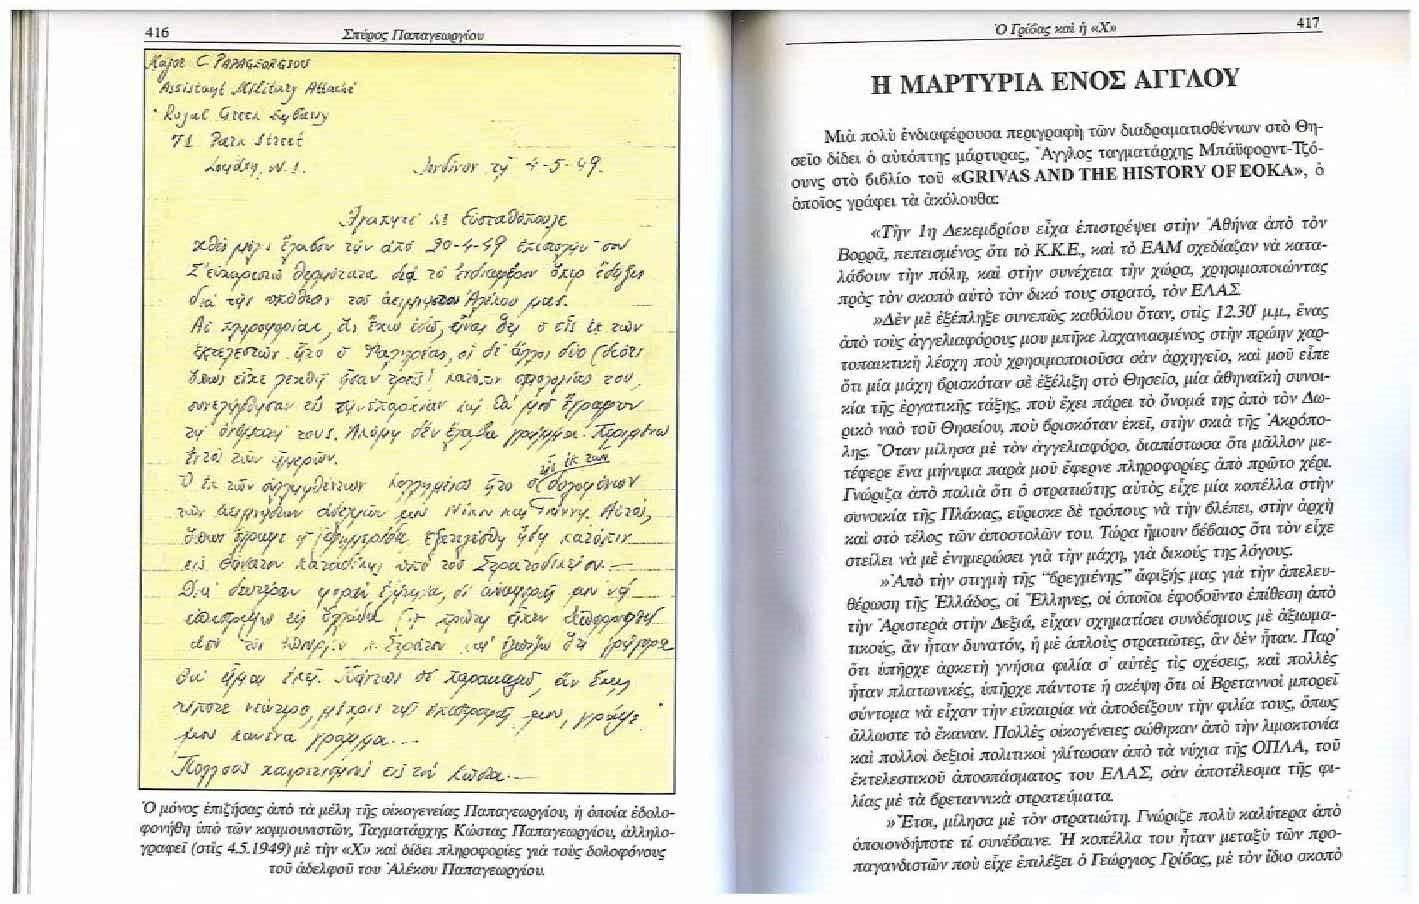 416
Σπύρος Παπαγεωργίου
Major C PAPAGEORGIOU
Assistant Military Attaché
Royal Greek Embassy
71 Park Street
London, W.1.
Λονδῖνον τῇ 4-5-49.
Ἀγαπητέ κε Εὐσταθόπουλε
Χθές μόλις ἔλαβον τήν ἀπό 20-4-49 ἐπιστολήν σου
Σ' εὐχαριστῶ θερμότατα διά τό ἐνδιαφέρον ὅπερ ἔδειξες
διά τήν ὑπόθεσιν τοῦ ἀειμνήστου Ἀλέκου μας.
Αἱ πληροφορίαι, ἅς ἔχω ἐδῶ, εἶναι ὅτι ὁ εἷς ἐκ τῶν
ἐκτελεστῶν ἦτο ὁ οἱ δέ ἄλλοι δύο (διότι
ὅπως εἶχε λεχθῇ ἦσαν τρεῖς) κατόπιν ὁμολογίας του,
συνελήφθησαν εἰς τήν ἐπαρχίαν καί θά μοῦ ἔγραφον
τά ὀνόματά τους. Ἀκόμη δέν ἔλαβα γράμμα. Περιμένω
ἐντός τῶν ἡμερῶν.
εἷς ἐκ τῶν
Ὁ ἐκ τῶν συλληφθέντων ἦτο ὁ δολοφόνων
τῶν ἀειμνήστων ἀδελφῶν μου Νίκου καί Γιάννη. Αὐτός,
ὅπως ἔγραψε ἡ ἐφημερίδα, ἐξετελέσθη ἤδη κατόπιν
εἰς θάνατον καταδίκης ὑπό τοῦ Στρατοδικείου.—
Διά δευτέραν φοράν ἀναφορά μου νά
ἐπιστρέψω εἰς Ἑλλάδα πρώτη εἶχεν ἀπορριφθῆ
ὑπουργόν κ. Στράτον καί ἐλπίζω ὅτι γρήγορα
θά εἶμαι ἐκεῖ. Πάντως σέ παρακαλῶ, ἄν ἔχεις
τίποτε νεώτερο, μέχρις τῆς ἐπιστροφῆς μου, γράψε
μου κανένα γράμμα.—
Πολλούς χαιρετισμούς εἰς τόν Κώστα.—
Ὁ μόνος ἐπιζήσας ἀπὸ τὰ μέλη τῆς οἰκογενείας Παπαγεωργίου, ἡ ὁποία ἐδολο-
φονήθη ὑπὸ τῶν κομμουνιστῶν, Ταγματάρχης Κώστας Παπαγεωργίου, ἀλληλο-
γραφεῖ (στὶς 4.5.1949) μὲ τὴν «Χ» καὶ δίδει πληροφορίες γιὰ τοὺς δολοφόνους
τοῦ ἀδελφοῦ του Ἀλέκου Παπαγεωργίου.
Ὁ Γρίβας καὶ ἡ «Χ»
417
Η ΜΑΡΤΥΡΙΑ ΕΝΟΣ ΑΓΓΛΟΥ
Μιὰ πολὺ ἐνδιαφέρουσα περιγραφὴ τῶν διαδραματισθέντων στὸ Θη-
σεῖο δίδει ὁ αὐτόπτης μάρτυρας, Ἄγγλος ταγματάρχης Μπάϋφορντ-Τζό-
ουνς στὸ βιβλίο τοῦ «GRIVAS AND THE HISTORY OF EOKA», ὁ
ὁποῖος γράφει τὰ ἀκόλουθα:
«Τὴν 1η Δεκεμβρίου εἶχα ἐπιστρέψει στὴν Ἀθήνα ἀπὸ τὸν
Βορρᾶ, πεπεισμένος ὅτι τὸ Κ.Κ.Ε., καὶ τὸ ΕΑΜ σχεδίαζαν νὰ κατα-
λάβουν τὴν πόλη, καὶ στὴν συνέχεια τὴν χώρα, χρησιμοποιώντας
πρὸς τὸν σκοπὸ αὐτὸ τὸν δικό τους στρατό, τὸν ΕΛΑΣ.
»Δὲν μὲ ἐξέπληξε συνεπῶς καθόλου ὅταν, στὶς 12.30΄ μ.μ., ἕνας
ἀπὸ τοὺς ἀγγελιαφόρους μου μπῆκε λαχανιασμένος στὴν πρώην χαρ-
τοπαικτικὴ λέσχη ποὺ χρησιμοποιοῦσα σὰν ἀρχηγεῖο, καὶ μοῦ εἶπε
ὅτι μία μάχη βρισκόταν σὲ ἐξέλιξη στὸ Θησεῖο, μία ἀθηναϊκὴ συνοι-
κία τῆς ἐργατικῆς τάξης, ποὺ ἔχει πάρει τὸ ὄνομά της ἀπὸ τὸν Δω-
ρικὸ ναὸ τοῦ Θησείου, ποὺ βρισκόταν ἐκεῖ, στὴν σκιὰ τῆς Ἀκρόπο-
λης. Ὅταν μίλησα μὲ τὸν ἀγγελιαφόρο, διαπίστωσα ὅτι μᾶλλον με-
τέφερε ἕνα μήνυμα παρὰ μοῦ ἔφερνε πληροφορίες ἀπὸ πρῶτο χέρι.
Γνώριζα ἀπὸ παλιὰ ὅτι ὁ στρατιώτης αὐτὸς εἶχε μία κοπέλλα στὴν
συνοικία τῆς Πλάκας, εὕρισκε δὲ τρόπους νὰ τὴν βλέπει, στὴν ἀρχὴ
καὶ στὸ τέλος τῶν ἀποστολῶν του. Τώρα ἤμουν βέβαιος ὅτι τὸν εἶχε
στείλει νὰ μὲ ἐνημερώσει γιὰ τὴν μάχη, γιὰ δικούς της λόγους.
»Ἀπὸ τὴν στιγμὴ τῆς “βρεγμένης” ἄφιξής μας γιὰ τὴν ἀπελευ-
θέρωση τῆς Ἑλλάδος, οἱ Ἕλληνες, οἱ ὁποῖοι ἐφοβοῦντο ἐπίθεση ἀπὸ
τὴν Ἀριστερὰ στὴν Δεξιά, εἶχαν σχηματίσει συνδέσμους μὲ ἀξιωμα-
τικούς, ἂν ἦταν δυνατόν, ἢ μὲ ἁπλοῦς στρατιῶτες, ἂν δὲν ἦταν. Παρ᾽
ὅτι ὑπῆρχε ἀρκετὴ γνήσια φιλία σ᾽ αὐτὲς τὶς σχέσεις, καὶ πολλὲς
ἦταν πλατωνικές, ὑπῆρχε πάντοτε ἡ σκέψη ὅτι οἱ Βρεταννοὶ μπορεῖ
σύντομα νὰ εἶχαν τὴν εὐκαιρία νὰ ἀποδείξουν τὴν φιλία τους, ὅπως
ἄλλωστε τὸ ἔκαναν. Πολλὲς οἰκογένειες σώθηκαν ἀπὸ τὴν λιμοκτονία
καὶ πολλοὶ δεξιοὶ πολιτικοὶ γλίτωσαν ἀπὸ τὰ νύχια τῆς ΟΠΛΑ, τοῦ
ἐκτελεστικοῦ ἀποσπάσματος του ΕΛΑΣ, σὰν ἀποτέλεσμα τῆς φι-
λίας μὲ τὰ βρεταννικὰ στρατεύματα.
»Ἔτσι, μίλησα μὲ τὸν στρατιώτη. Γνώριζε πολὺ καλύτερα ἀπὸ
ὁποιονδήποτε τί συνέβαινε. Ἡ κοπέλλα του ἦταν μεταξὺ τῶν προ-
παγανδιστῶν ποὺ εἶχε ἐπιλέξει ὁ Γεώργιος Γρίβας, μὲ τὸν ἴδιο σκοπὸ